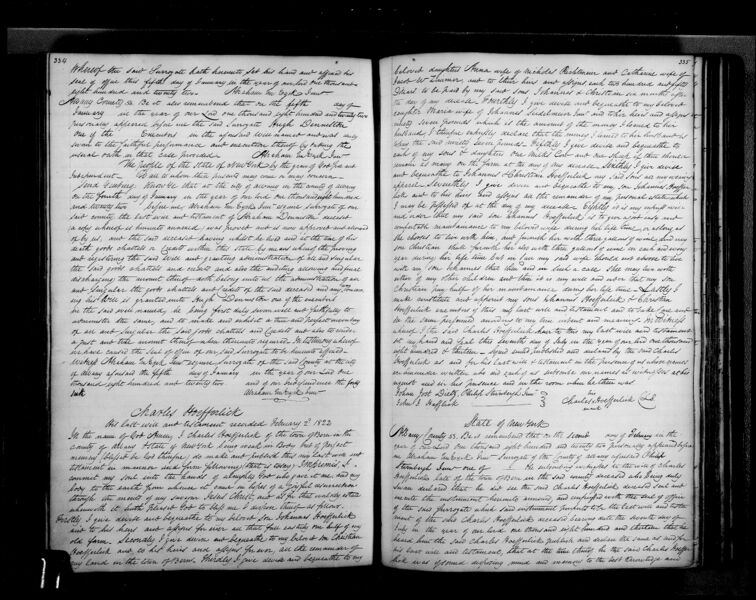 334
Whereof the said Surrogate hath hereunto set his hand and affixed his
seal of office this fifth day of January in the year of our Lord one thousand
eight hundred and twenty two Abraham Ten Eyck Junr
Albany County ss. Be it also remembered that on the fifth day of
January in the year of our Lord one thousand eight hundred and twenty two
Personally appeared before me the said Surrogate Hugh Denniston
one of the Executors in the aforesaid will named and was duly
sworn to the faithful performance and execution thereof by taking the
usual oath in that case provided. Abraham Ten Eyck Junr
The People of the State of New York by the grace of God free and
Independent. To all to whom these presents may come or may concern
Send Greeting. Know ye that at the city of Albany in the county of Albany
on the fourth day of January in the year of our Lord one thousand eight hundred
and twenty two before Abraham Ten Eyck Junr Esquire Surrogate of our
said county the last will and testament of Abraham Denniston deceased
(a copy whereof is hereunto annexed) was proved and is now approved and allowed
of by us, and the said deceased having whilst he lived and at the time of his
death goods chattels or Credits within this state by means whereof the proving
and registering the said will and granting administration of all and singular
the said goods chattels and credits and also the auditing allowing and final
discharging the account thereof doth belong unto us the administration of all
and singular the goods chattels and credits of the said deceased and any way concern
ing his Will is granted unto Hugh Denniston one of the executors
in the said will named, he being first duly sworn well and faithfully to
administer the same, and to make and exhibit a true and perfect inventory
of all and singular the said goods chattels and Credits and also to render
a just and true account thereof when thereunto required. In testimony whereof
we have caused the Seal of office of our said Surrogate to be hereunto affixed.
Witness Abraham Ten Eyck Junr Esquire Surrogate of the said County at the city
of Albany aforesaid the fifth day of January in the year of our Lord one
thousand eight hundred and twenty two and of our Independence the forty
sixth Abraham Ten Eyck Junr
Charles Hoefferlick
His last will and testament recorded February 2d 1822
In the name of God Amen, I Charles Hoefferlick of the town of Bern in the
County of Albany State of New York being weak in Body but of perfect
memory (blessed be God therefor) do make and publish this my last will and
testament in manner and form following (that is to say) Imprimis, I
commit my soul into the hands of almighty God who gave it me and my
Body to the earth from whence it came in hopes of a joyfull resurrection
through the merits of my saviour Jesus Christ and as for that worldly estate
wherewith it hath Pleased God to bless me I dispose thereof as follows.
Firstly I give devise and bequeathe to my beloved son Johannes Hoefferlick
and to his heirs and assigns for ever all that full easterly one half of my
old farm. Secondly I give devise and bequeathe to my beloved son Christian
Hoefferlick and to his heirs and assigns for ever, all the remainder of
my land in the town of Bern. Thirdly I give devise and bequeathe to my
335
beloved daughters Anna wife of Nicholas Rightmeur and Catharine wife of
Jacob W. Zimmer and to their heirs and assigns each two hundred and fifty
dollars to be paid by my said sons Johannes & Christian six months after
the day of my decease. Fourthly I give devise and bequeathe to my beloved
daughter Maria wife of Johannes Seidelmeus Junr and to her heirs and assigns
ninety seven pounds which is the amount of the money I loaned to her
husband, I therefore entirely declare that the money loaned to her husband is
only the said ninety seven pounds. Fifthly I give devise and bequeathe to
each of my sons & daughters one milch Cow and one sheep if there should
remain so many on the farm at the day of my decease. Sixthly I give devise
and bequeathe to Johannes & Christian Hoefferlick my said sons all my wearing
apparel. Seventhly I give devise and bequeathe to my son Johannes Hoeffer-
lick and to his heirs and assigns all the remainder of my personal estate which
I may be possessed of at the day of my decease. Eighthly it is my express will
and order that my said son Johannes Hoefferlick is to give a just easy and
comfortable maintainance to my beloved wife during her life time, as long as
she chooses to live with him, and furnish her with three gallons of wine, and my
son Christian shall furnish her also with three gallons of wine in each and every
year during her life time but in case my said wife should not choose to live
with my son Johannes that then and in such a case she may live with
either of my other children and then it is my will and order that my son
Christian pay half of her maintainance during her life time. Lastly I
make constitute and appoint my sons Johannes Hoefferlick & Christian
Hoefferlick executors of this my last will and testament and to take care and see
the same performed according to my true intent and meaning. In Witness
whereof I the said Charles Hoefferlick have to this my last will and testament
set my hand and seal this seventh day of July in the year of our Lord one thousand
eight hundred & thirteen. Signed sealed published and declared by the said Charles
Hoefferlick as and for his last will & testament in the presence of us whose names
are hereunder written who did each of us subscribe our names as witnesses at his
request and in his presence and in the room when he then was.
Johan Jost Dietz, Philip Steinbergh Junr
John J. Hafflick
his
Charles Hoefferlick
mark
State of New York
Albany County ss. Be it remembered that on the second day of February in the
year of our Lord one thousand eight hundred and twenty two personally appeared before
me Abraham Ten Eyck Junr Surrogate of the County of Albany aforesaid Philip
Steinbergh Junr one of the subscribing witnesses to the will of Charles
Hoefferlick late of the town of Bern in the said county deceased who being duly
sworn declared that he did see the said Charles Hoefferlick deceased sign and
execute the instrument hereunto annexed, and certified with the seal of office
of the said surrogate which said instrument purports to be the last will and testa-
ment of the said Charles Hoefferlick deceased bearing date the seventh day of
July in the year of our Lord one thousand eight hundred and thirteen that he
heard him the said Charles Hoefferlick publish and declare the same as and for
his last will and testament, that at the time thereof he the said Charles Hoeffer-
lick was of sound disposing mind and memory to the best knowledge and